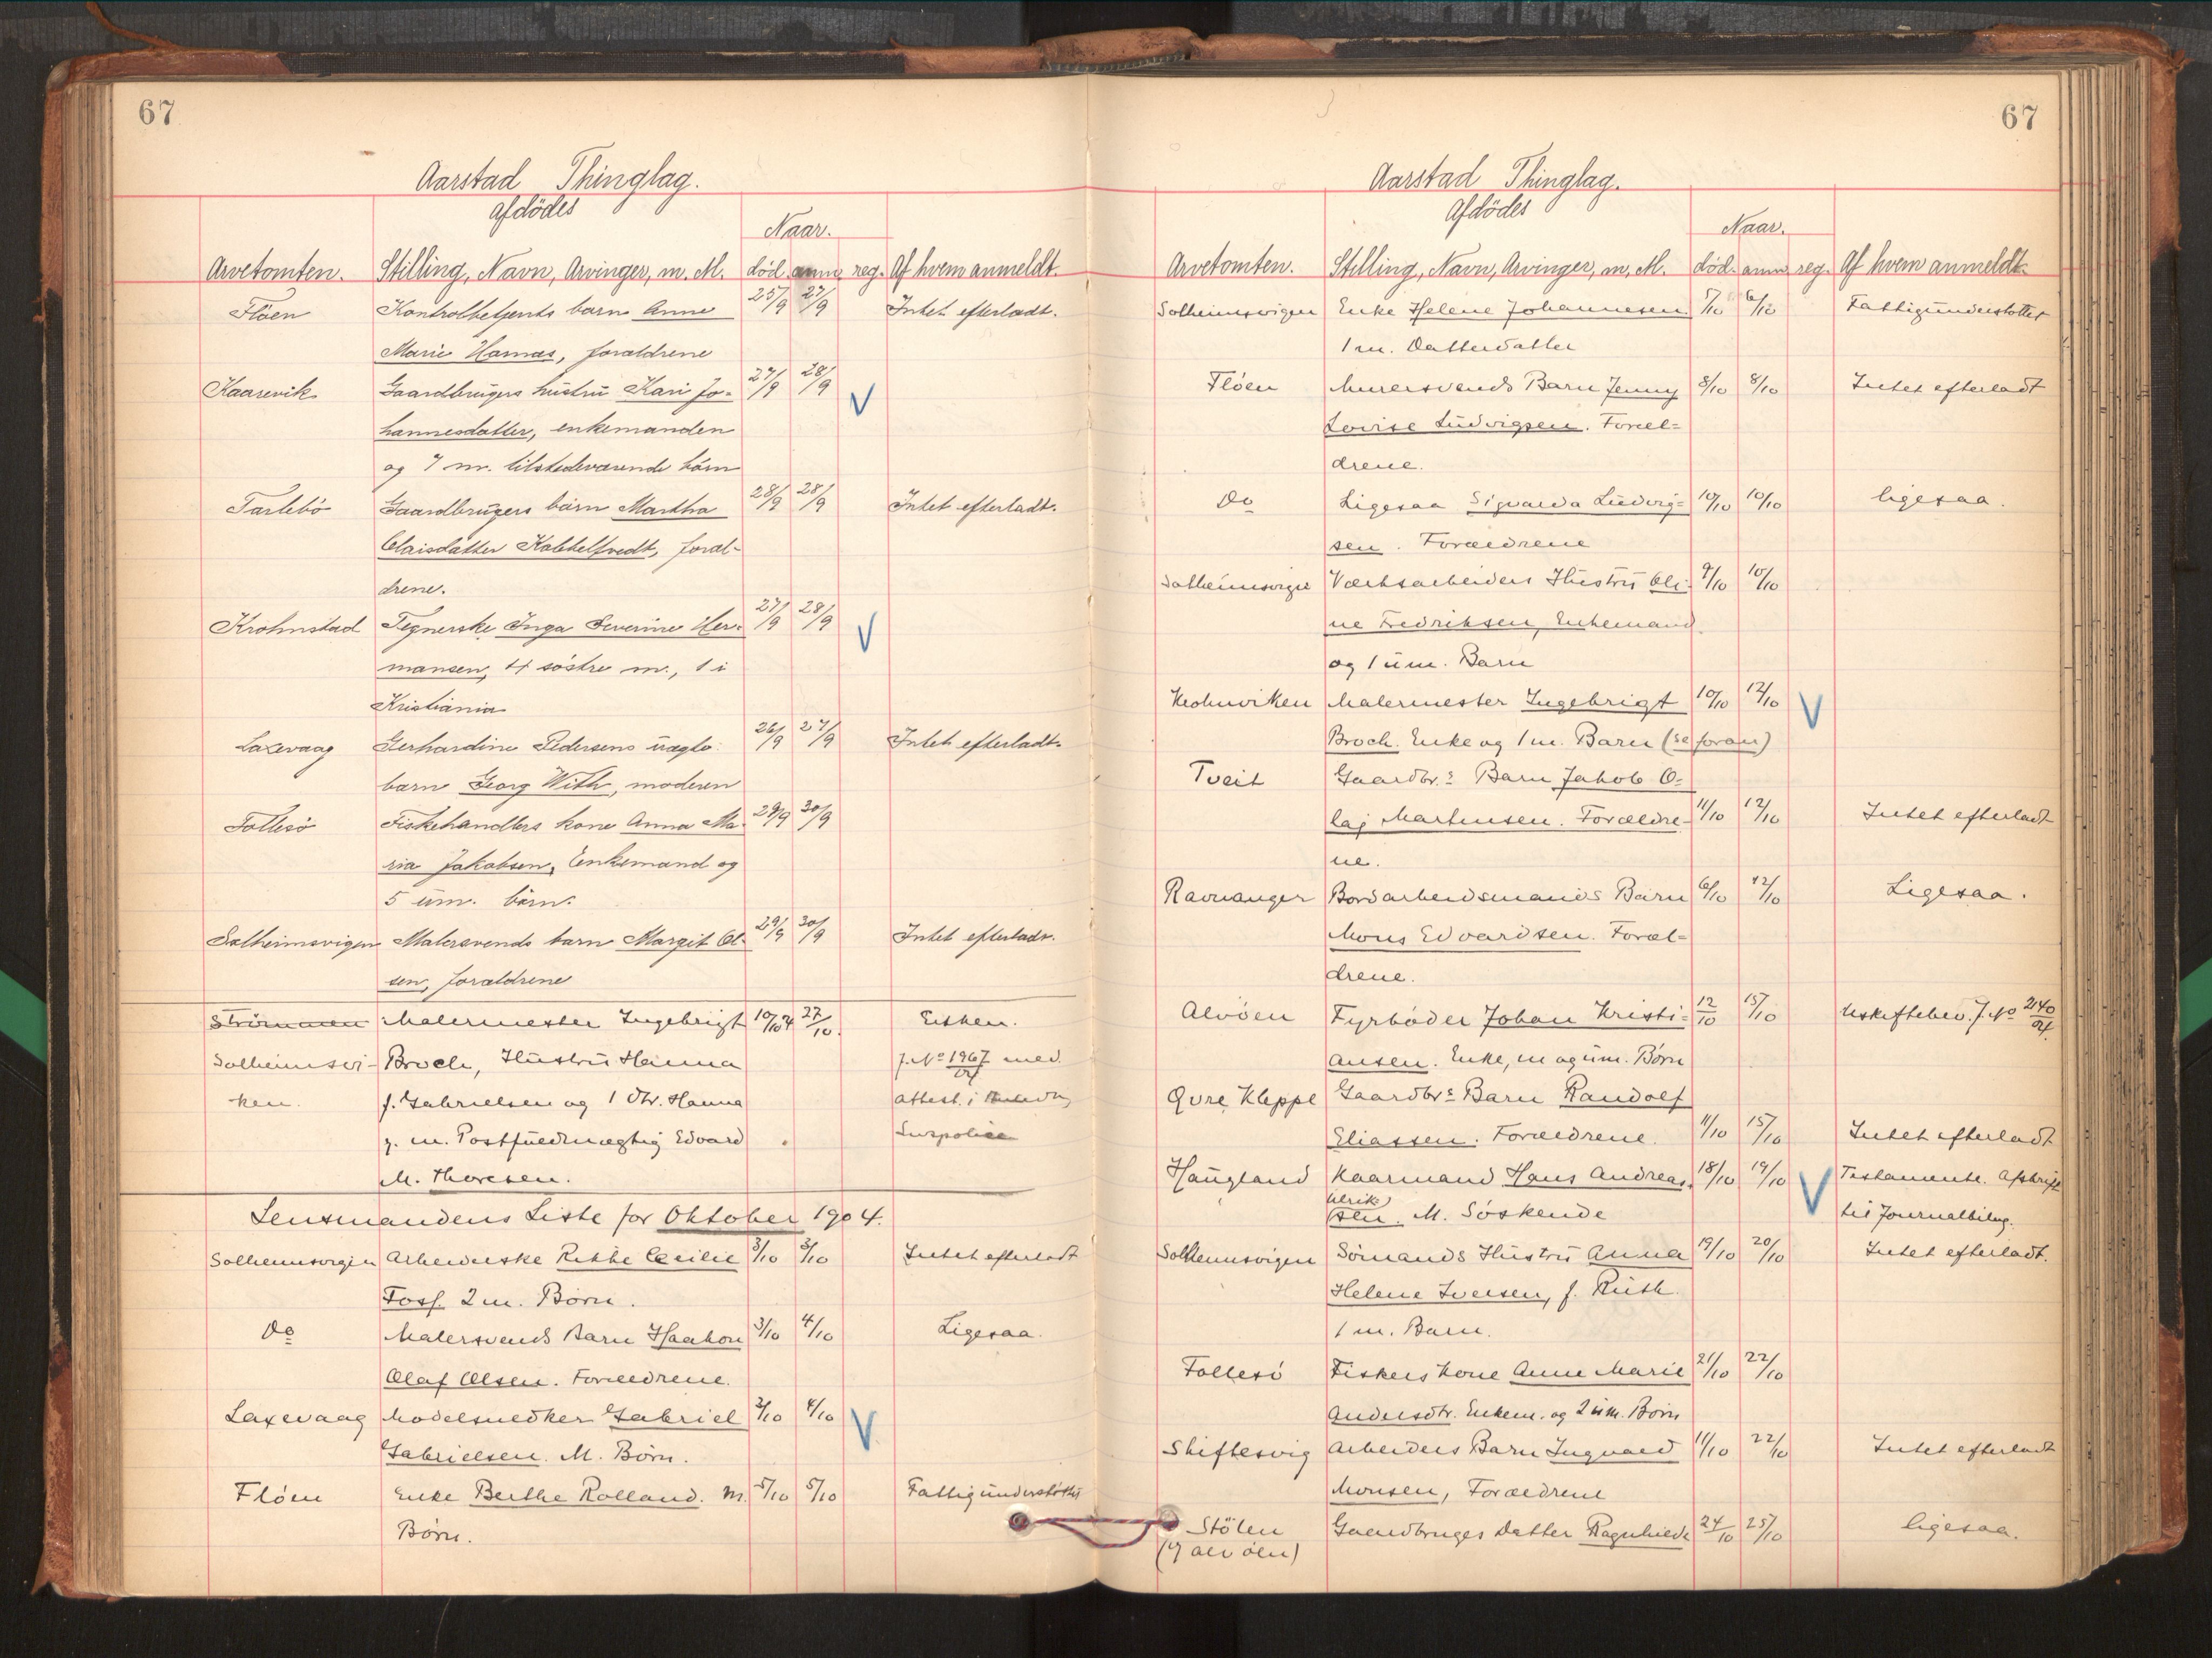 67
Aarstad Thinglag.
Afdödes
Naar.
Arvetomten. Stilling, Navn, Arvinger, m. M. död. anm. reg. Af hvem anmeldt.
Flöen Kontrolbetjents barn Anne 25/9 27/9 Intet efterladt.
Marie Hamas, forældrene
Kaarevik Gaardbrugers hustru Kari Jo- 27/9 28/9 V
hannesdatter, enkemanden
og 7 m. tilstedeværende börn
Tarlebö Gaardbrugers barn Martha 28/9 28/9 Intet efterladt.
Claisdatter Kobbeltvedt, foræl-
drene.
Krohnstad Tegnerske Inga Severine Her- 27/9 28/9 V
mansen, 4 söstre m., 1 i
Kristiania
Laxevaag Gerhardine Pedersens uægte 26/9 27/9 Intet efterladt.
barn Georg With, moderen
Follesö Fiskehandlers kone Anna Ma- 29/9 30/9
ria Jakobsen, Enkemand og
5 um. börn.
Solheimsvigen Malersvends barn Margit Ol- 29/9 30/9 Intet efterladt.
sen, forældrene
Strömmen Malermester Ingebrigt 10/10 4 27/10. Enken.
Solheimsvi- Broch, Hustru Hanna J. No 1967/04 med
ken. f. Gabrielsen og 1 dtr. Hanna attest. i
g. m. Postfuldmægtig Edvard
M. Thoresen.
Lensmandens Liste for Oktober 1904.
Solheimsvigen Arbeiderske Rikke Cecilie 3/10 3/10 Intet efterladt
Foss. 2 m. Børn.
Do Malersvends Barn Haakon 3/10 4/10 Ligesaa.
Olaf Olsen. Forældrene.
Laxevaag Modelsnedker Gabriel 2/10 4/10 V
Gabrielsen. M. Börn.
Flöen Enke Berthe Rolland. M. 5/10 5/10 Fattigunderstöttet
Børn.
67
Aarstad Thinglag.
Afdödes
Naar.
Arvetomten. Stilling, Navn, Arvinger, m. M. död. anm. reg. Af hvem anmeldt.
Solheimsvigen Enke Helene Johannesen 5/10 6/10 Fattigunderstöttet
1 m. Datterdatter
Flöen Murersvends Barn Jenny 8/10 8/10 Intet efterladt
Lovise Ludvigsen. Foræl-
drene.
Do Ligesaa Sigvarda Ludvig- 10/10 10/10 ligesaa.
sen. Forældrene
Solheimsvigen Værksarbeiders Hustru Oli- 9/10 10/10
ne Fredriksen, Enkemand
og 1 um. Barn
Krohnviken Malermester Ingebrigt 10/10 12/10 V
Broch. Enke og 1 m. Barn (se foran)
Tveit Gaardbr.s Barn Jakob O-
laj Martinsen. Forældre- 11/10 12/10 Intet efterladt
ne.
Ravnanger Bordarbeidsmands Barn 6/10 12/10 Ligesaa.
Mons Edvardsen. Foræl-
drene.
Alvöen Fyrböder Johan Kristi- 12/10 15/10 Uskiftebev. J. No 2140/04.
ansen. Enke, m og um. Børn
Qvre Kleppe Gaardbrs Barn Randolf
Eliassen. Forældrene. 11/10 15/10 Intet efterladt
Haugland Kaarmand Hans Andreas 18/10 19/10 V Testamente. Afskrift
Ulrik
sen. M. Söskende til Journalbilag.
Solheimsvigen Sömands Hustru Anna 19/10 20/10 Intet efterladt.
Helene Iversen, f. Ruth
1 m. Barn.
Follesö Fiskers Kone Anne Marie 21/10 22/10
Andersdtr. Enkem. og 2 um. Börn
Skiftesvig Arbeiders Barn Ingvald 11/10 22/10 Intet efterladt
Monsen, Forældrene
Stölen Gaardbruges Datter Ragnhild 24/10 25/10 ligesaa.